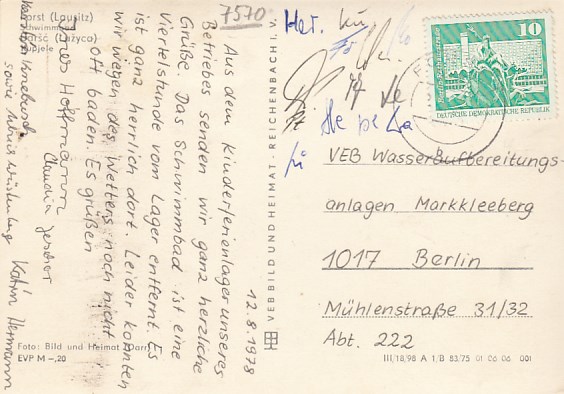 7570
Forst (Lausitz)
Schwimmbad
Baršć (Łužyca)
12.8.1978
Aus dem Kinderferienlager unseres
Betriebes senden wir ganz herzliche
Grüße. Das Schwimmbad ist eine
Viertelstunde vom Lager entfernt. Es
ist ganz herrlich dort. Leider konnten
wir wegen des Wetters noch nicht
oft baden. Es grüßen
Ines Hoffmann
Claudia
Katrin Hermann
sowie
VEB BILD UND HEIMAT · REICHENBACH I. V.
Foto: Bild und Heimat
EVP M –,20
Her.
10
DEUTSCHE DEMOKRATISCHE REPUBLIK
VEB Wasseraufbereitungs-
anlagen Markkleeberg
1017 Berlin
Mühlenstraße 31/32
Abt. 222
III/18/98 A 1/B 83/75 01 06 06 001